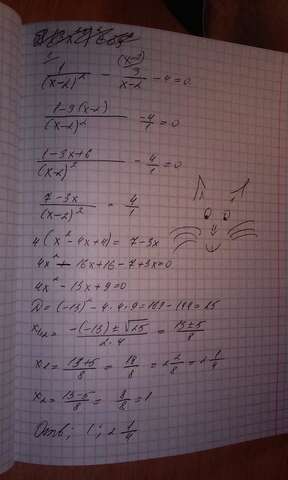 1
1/(x-2)² - 3/(x-2) - 4 = 0
(x-2)
(1-3(x-2))/(x-2)² - 4/1 = 0
(1-3x+6)/(x-2)² - 4/1 = 0
(7-3x)/(x-2)² - 4/1
4(x²-4x+4) = 7-3x
4x² - 16x+16-7+3x=0
4x² - 13x+9=0
D = (-13)² - 4·4·9 = 169-144 = 25
x₁,₂ = (-(-13)±√25)/(2·4) = (13±5)/8
x₁ = (13+5)/8 = 18/8 = 2 2/8 = 2 1/4
x₂ = (13-5)/8 = 8/8 = 1
Ответ; 1; 2 1/4